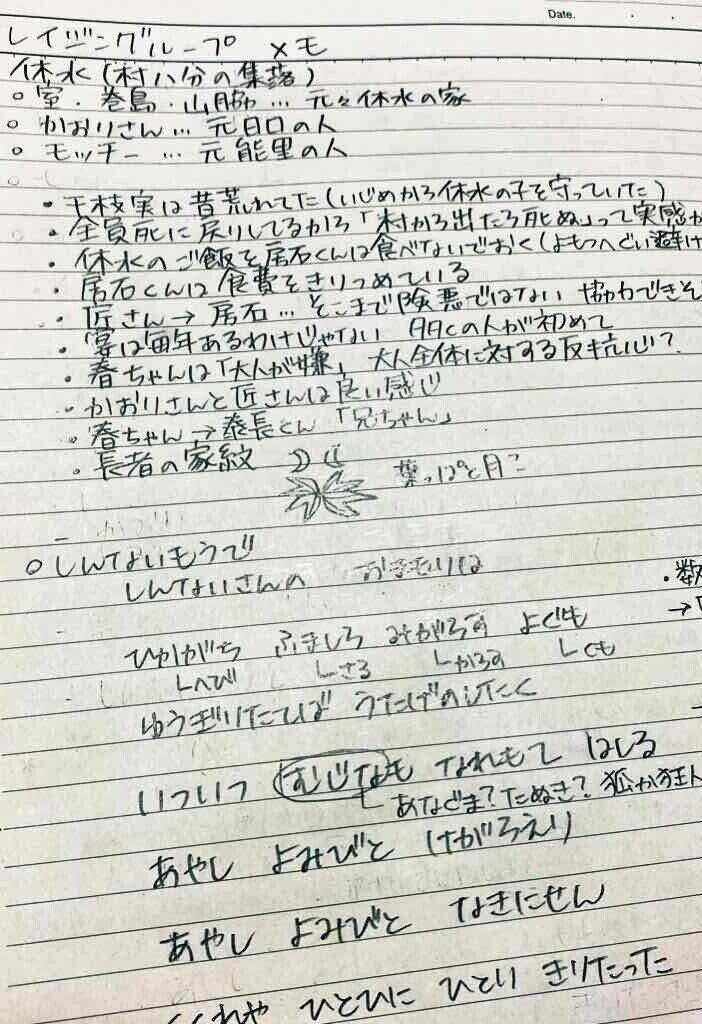 Date.
レイジングループ メモ
休水(村八分の集落)
○室・巻島・山脇… 元々休水の家
○かおりさん… 元日口の人
○モッチー … 元能里の人
・千枝実は昔荒れてた(いじめから休水の子を守っていた)
・全員死に戻りしてるから「村から出たら死ぬ」って実感が
・休水のご飯を房石くんは食べないでおく(よもつへぐい避け
・房石くんは食費をきりつめている
・匠さん→房石…そこまで険悪ではない 協力できそ
・宴は毎年あるわけじゃない 多くの人が初めて
・春ちゃんは「大人が嫌」 大人全体に対する反抗心?
・かおりさんと匠さんは良い感じ
・春ちゃん→泰長くん「兄ちゃん」
・長者の家紋 葉っぱと月?
○しんないもうで
しんないさんの おきもりは
・数
→「
ひかがち ふましら みがらす よぐも
└へび └さる └からす └くも
ゆうぎりたてば うたげのしたく
いついつ むじなも なれもて はしる
└あなぐま?たぬき?狐か狂人
あやし よみびと けがらえり
あやし よみびと なきにせん
くれや ひとひに ひとり きりたった